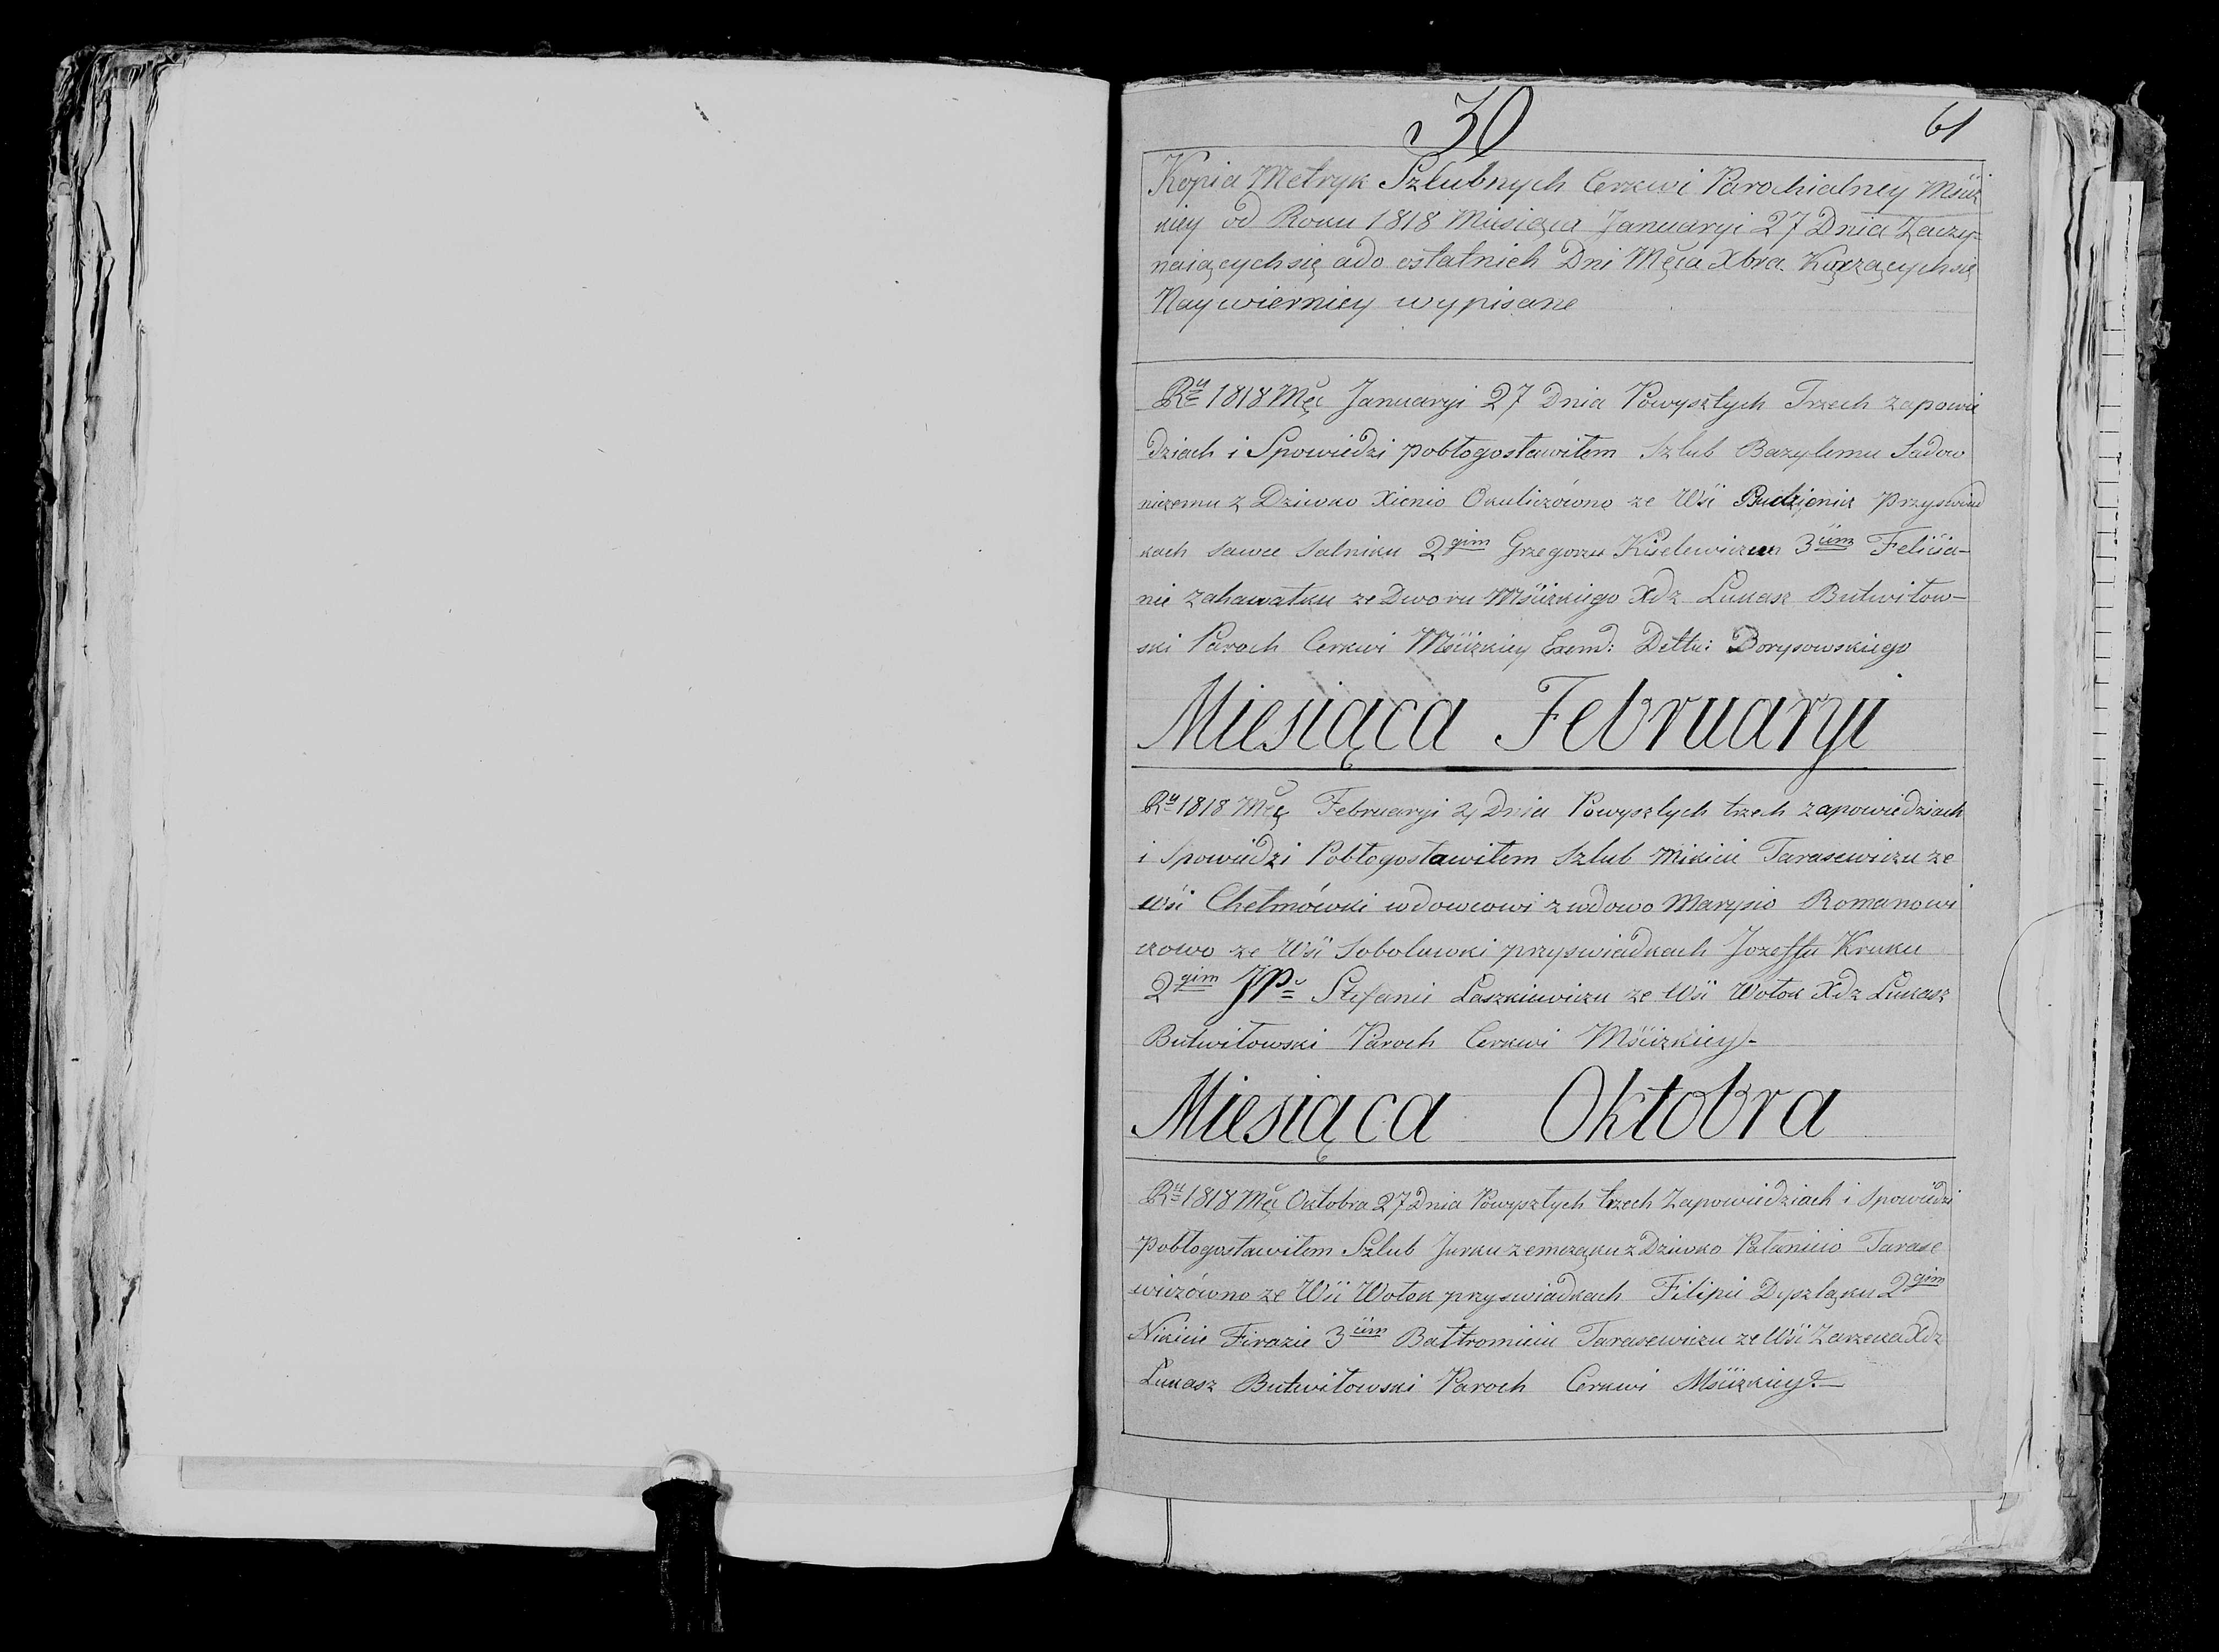 30
61
Kopia Metryk Szlubnych Cerkwi Parochialney Mściż
kiey od Roku 1818 Miesiąca Januaryi 27 Dnia Zaczy-
naiących się ado ostatnich Dni Męca Xbra Kączących się
Naywierniey wypisane
Ru 1818 Męc Januaryi 27 Dnia Powyszłych Trzech zapowie
dziach i Spowiedzi pobłogosławiłem Szlub Bazylemu Sadow
niczemu z Dziwko Xienio Okuliczówno ze Wśi Budzienicz Przyswiad
kach Sawce Salniku 2gim Grzegorzu Kiselewiczu 3cim Felicia-
nie Zahawatku ze Dworu Mściżkiego Xdz Łukasz Butwiłow-
ski Paroch Cerkwi Mściżkiey Exem: Dektu: Borysowskiego
Miesiąca Februaryi
Ru 1818 Męc Februaryi Dnia Powyszłych trzech zapowiedziach
i Spowiedzi Pobłogosławiłem Szlub Mikicie Tarasewiczu ze
Wśi Chełmówki wdowcowi z wdowo Marysio Romanowi
czowo ze Wśi Sobolewki przyswiadkach Jozeffu Kruku
2gim JP Stefanie Laszkiewiczu ze Wśi Wołok Xdz Łukasz
Butwiłowski Paroch Cerkwi Mściżkiey
Miesiąca Oktobra
Ru 1818 Męc Oktobra 27 Dnia Powyszłych trzech Zapowiedziach i Spowiedzi
pobłogosławiłem Szlub Jurku z Dziwko Pałanieio Tarase
wiczówno ze Wśi Wołok przyswiadkach Filipie Dyszląku 2gim
Nikicie Firazie 3cim Bałtromieiu Tarasewiczu ze Wśi Zarzecza Xdz
Łukasz Butwiłowski Paroch Cerkwi Mściżkiey